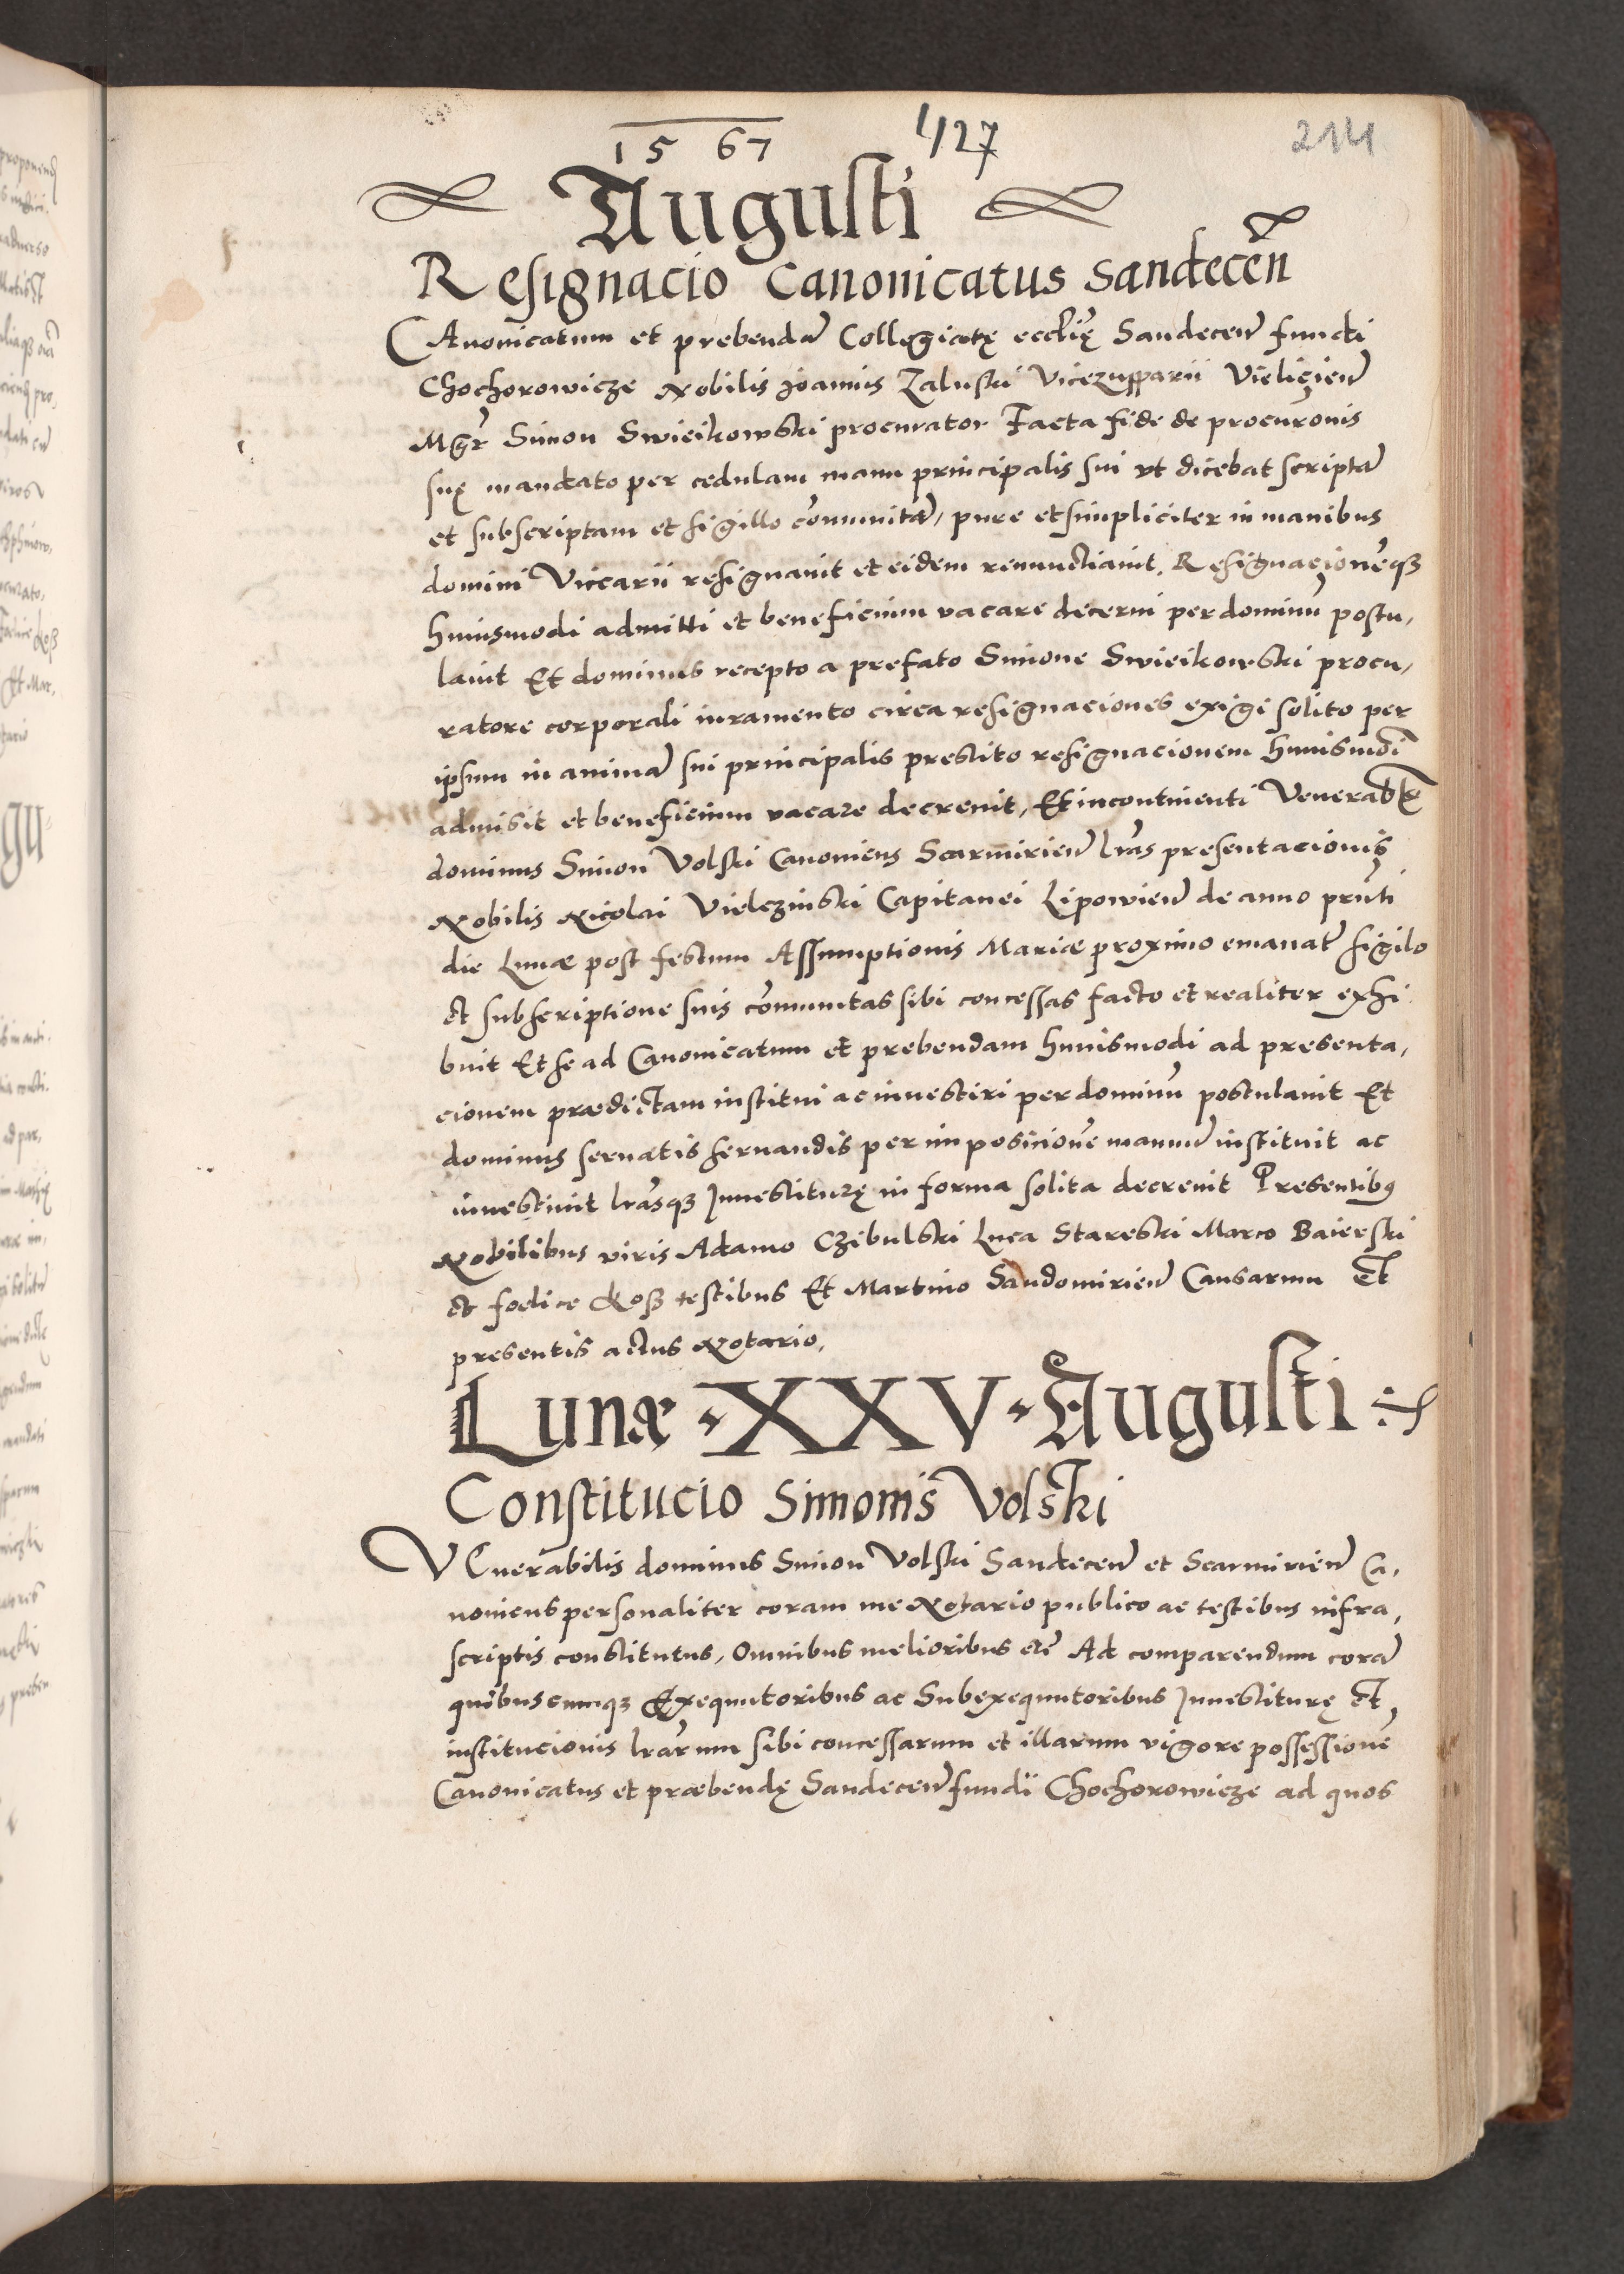 1567 427 214
Augusti
Resignacio Canonicatus Sandecen̄
CAnonicatum et prebendā Collegiatę eccl̄ię Sandeceñ fundi
Chochorowicze Nobilis Joannis Zaluski Vicezupparii Vielicień
Mgr̄ Simon Swieikowski procurator Facta fide de procurōnis
suę mandato per cedulam manu principalis sui vt dicebat scriptā
et subscriptam et sigillo cōmunitā, pure et simpliciter in manibus
domini Vicarii resignauit et eidem renunctiauit. Resignacionēqꝫ
huiusmodi admitti et beneficium vacare decerni per dominū postu,
lauit Et dominus recepto a prefato Simone Swieikowski procu,
ratore corporali iuramento circa resignaciones exigi solito per
ipsum in animā sui principalis prestito resignacionem huiusmōi
admisit et beneficium vacare decreuit, Et incontinenti Venerabłis
dominus Simon Volski Canonicus Scarmirień lrās presentacionis
Nobilis Nicolai Vielczinski Capitanei Lipowień de anno prn̄ti
die Lunæ post festum Assumptionis Mariæ proximo emanat̄ sigilo
et subscriptione suis cōmunitas sibi concessas facto et realiter exhi
buit Et se ad Canonicatum et prebendam huiusmodi ad presenta,
cionem prædictam institui ac inuestiri per dominū postulauit Et
dominus seruatis seruandis per imposicionē manuū instituit ac
inuestiuit lrāsqꝫ Inuestiturę in forma solita decreuit Presentibꝰ
Nobilibus viris Adamo Czibulski Luca Stareski Marco Baierski
et foelice Koß testibus Et Martino Sandomirień Causarum Et
presentis actus Notario,
Lunæ XXV Augusti
Constitucio Simonis Volski
VEnerabilis dominus Simon Volski Sandeceñ et Scarmirień Ca,
nonicus personaliter coram me Notario publico ac testibus infra,
scriptis constitutus, Omnibus melioribus etc̄ Ad comparendum corā
quibuscumqꝫ Exequutoribus ac Subexequutoribus Inuestiturę Et
institucionis lrārum sibi concessarum et illarum vigore possessionē
Canonicatus et præbendę Sandeceñ fundi Chochorowicze ad quos